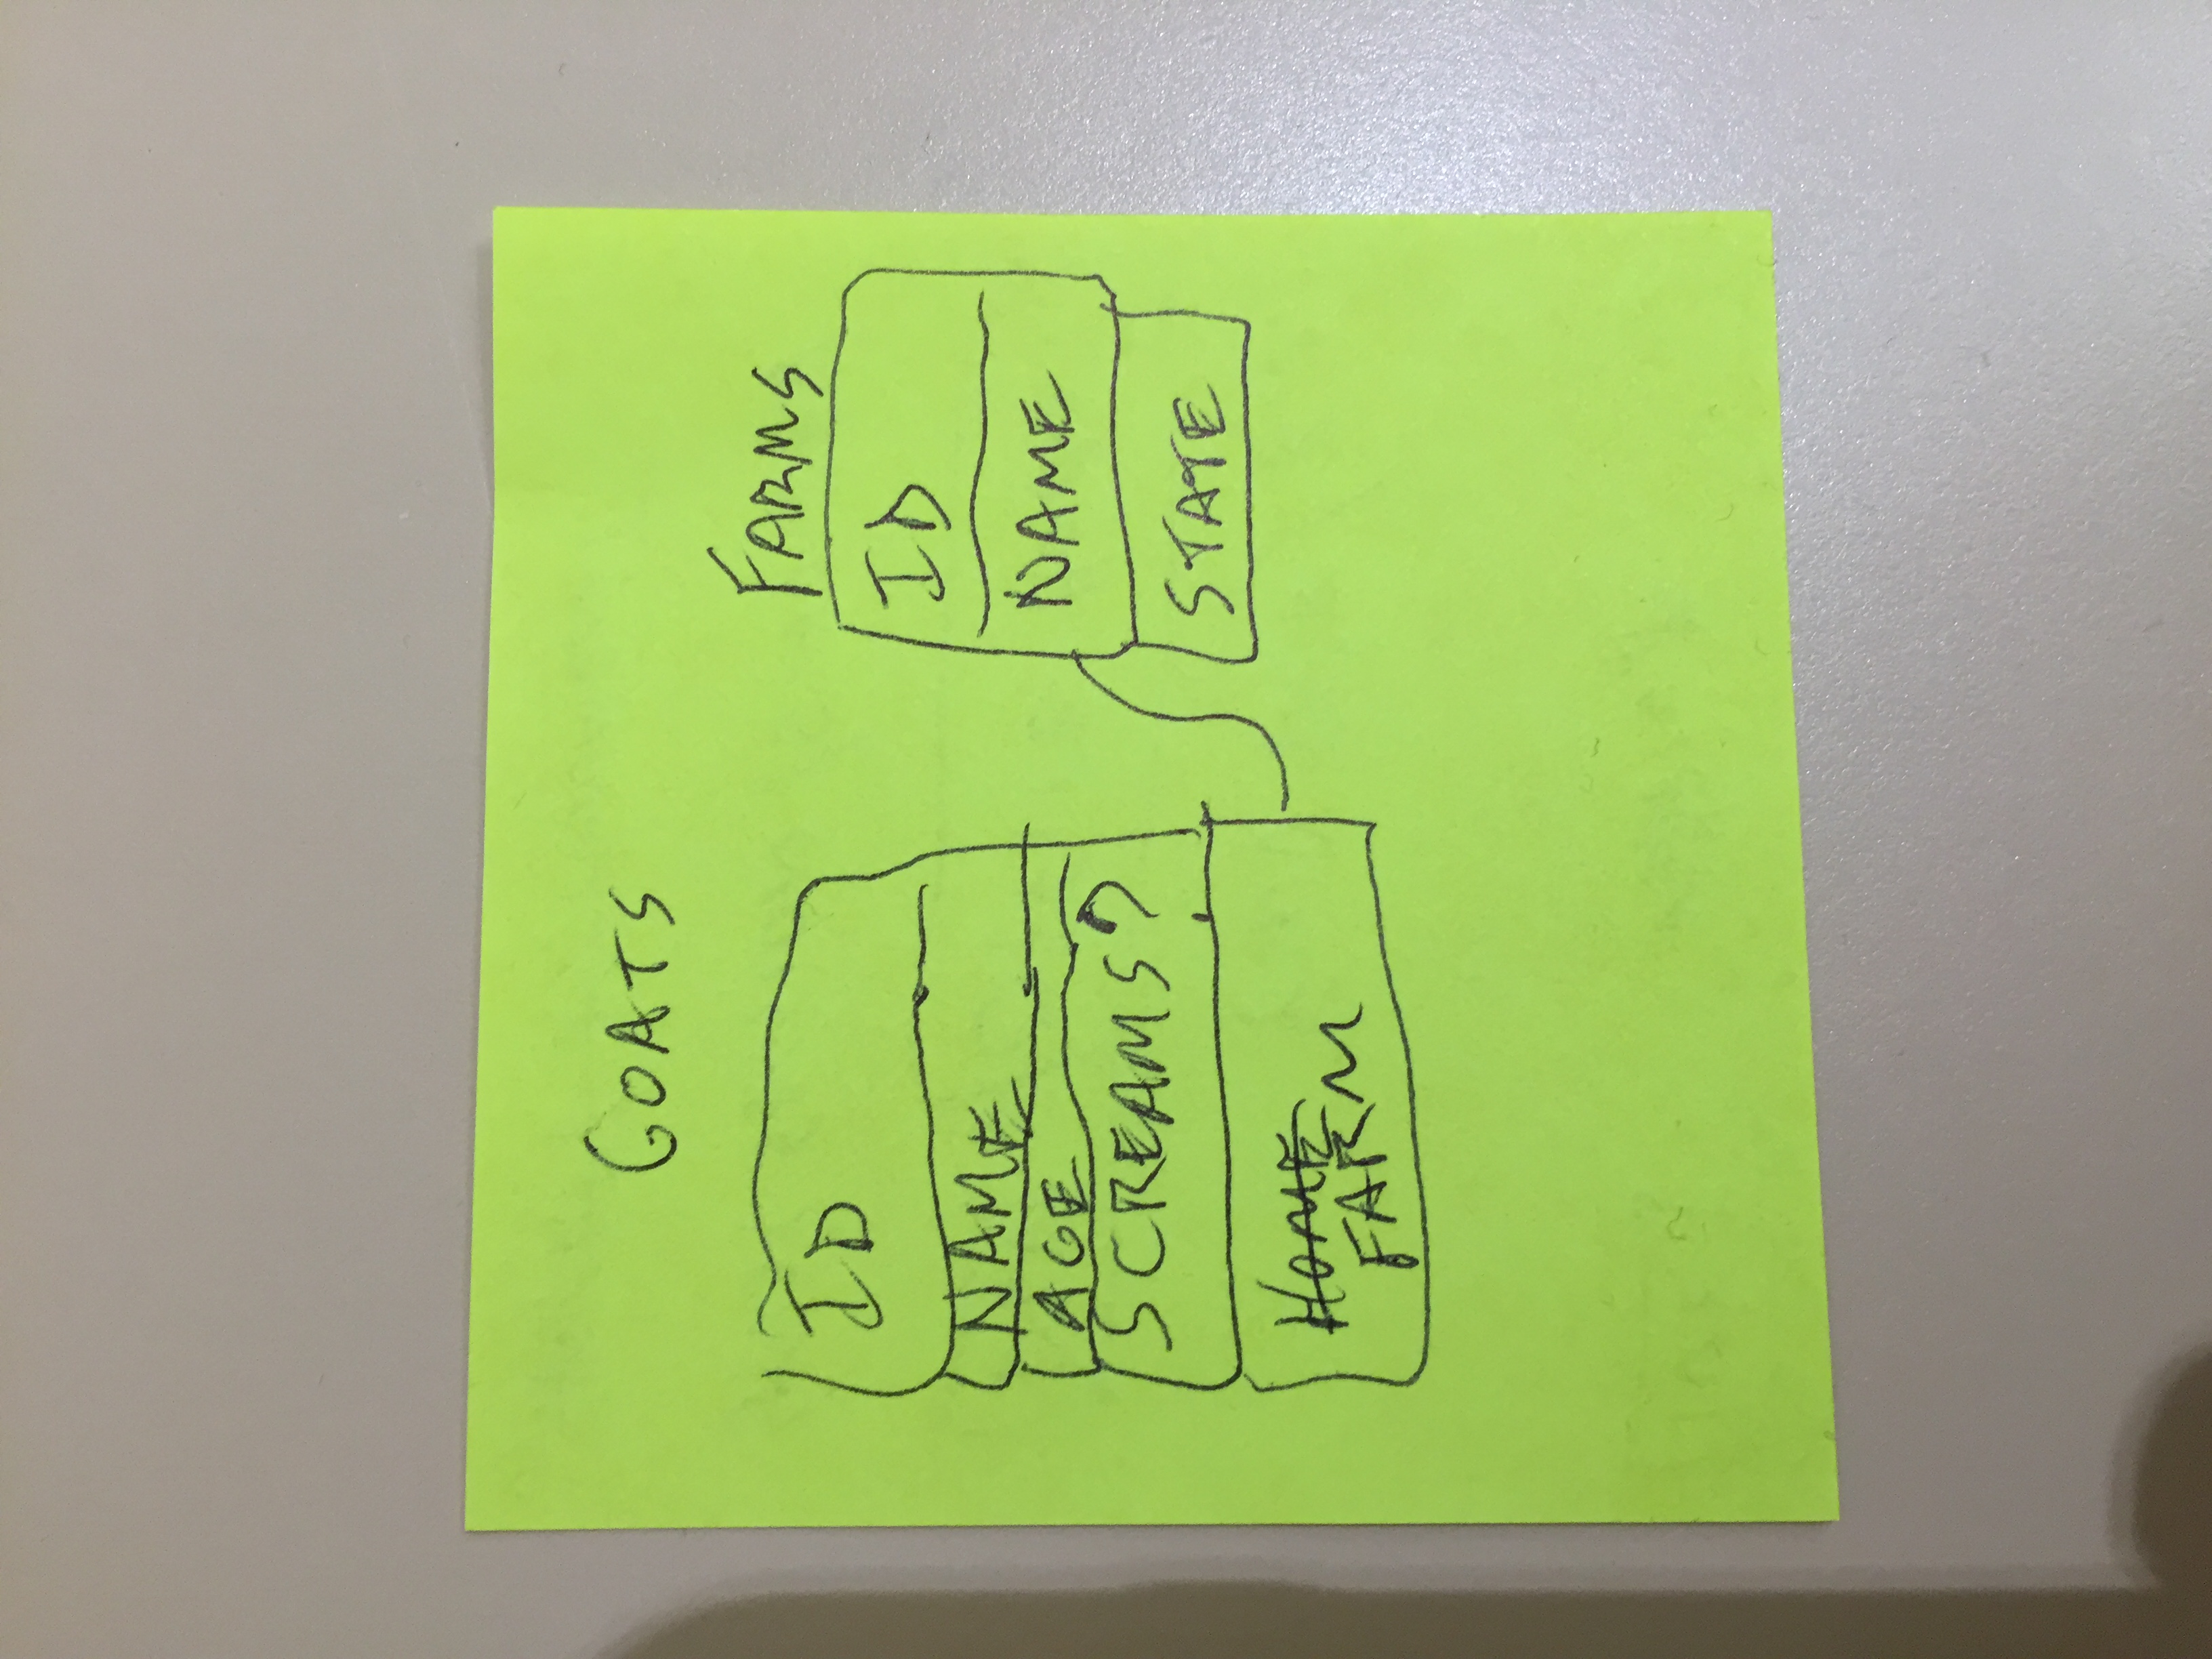 GOATS
ID
NAME
AGE
SCREAMS?
HOME
FARM
FARMS
ID
NAME
STATE